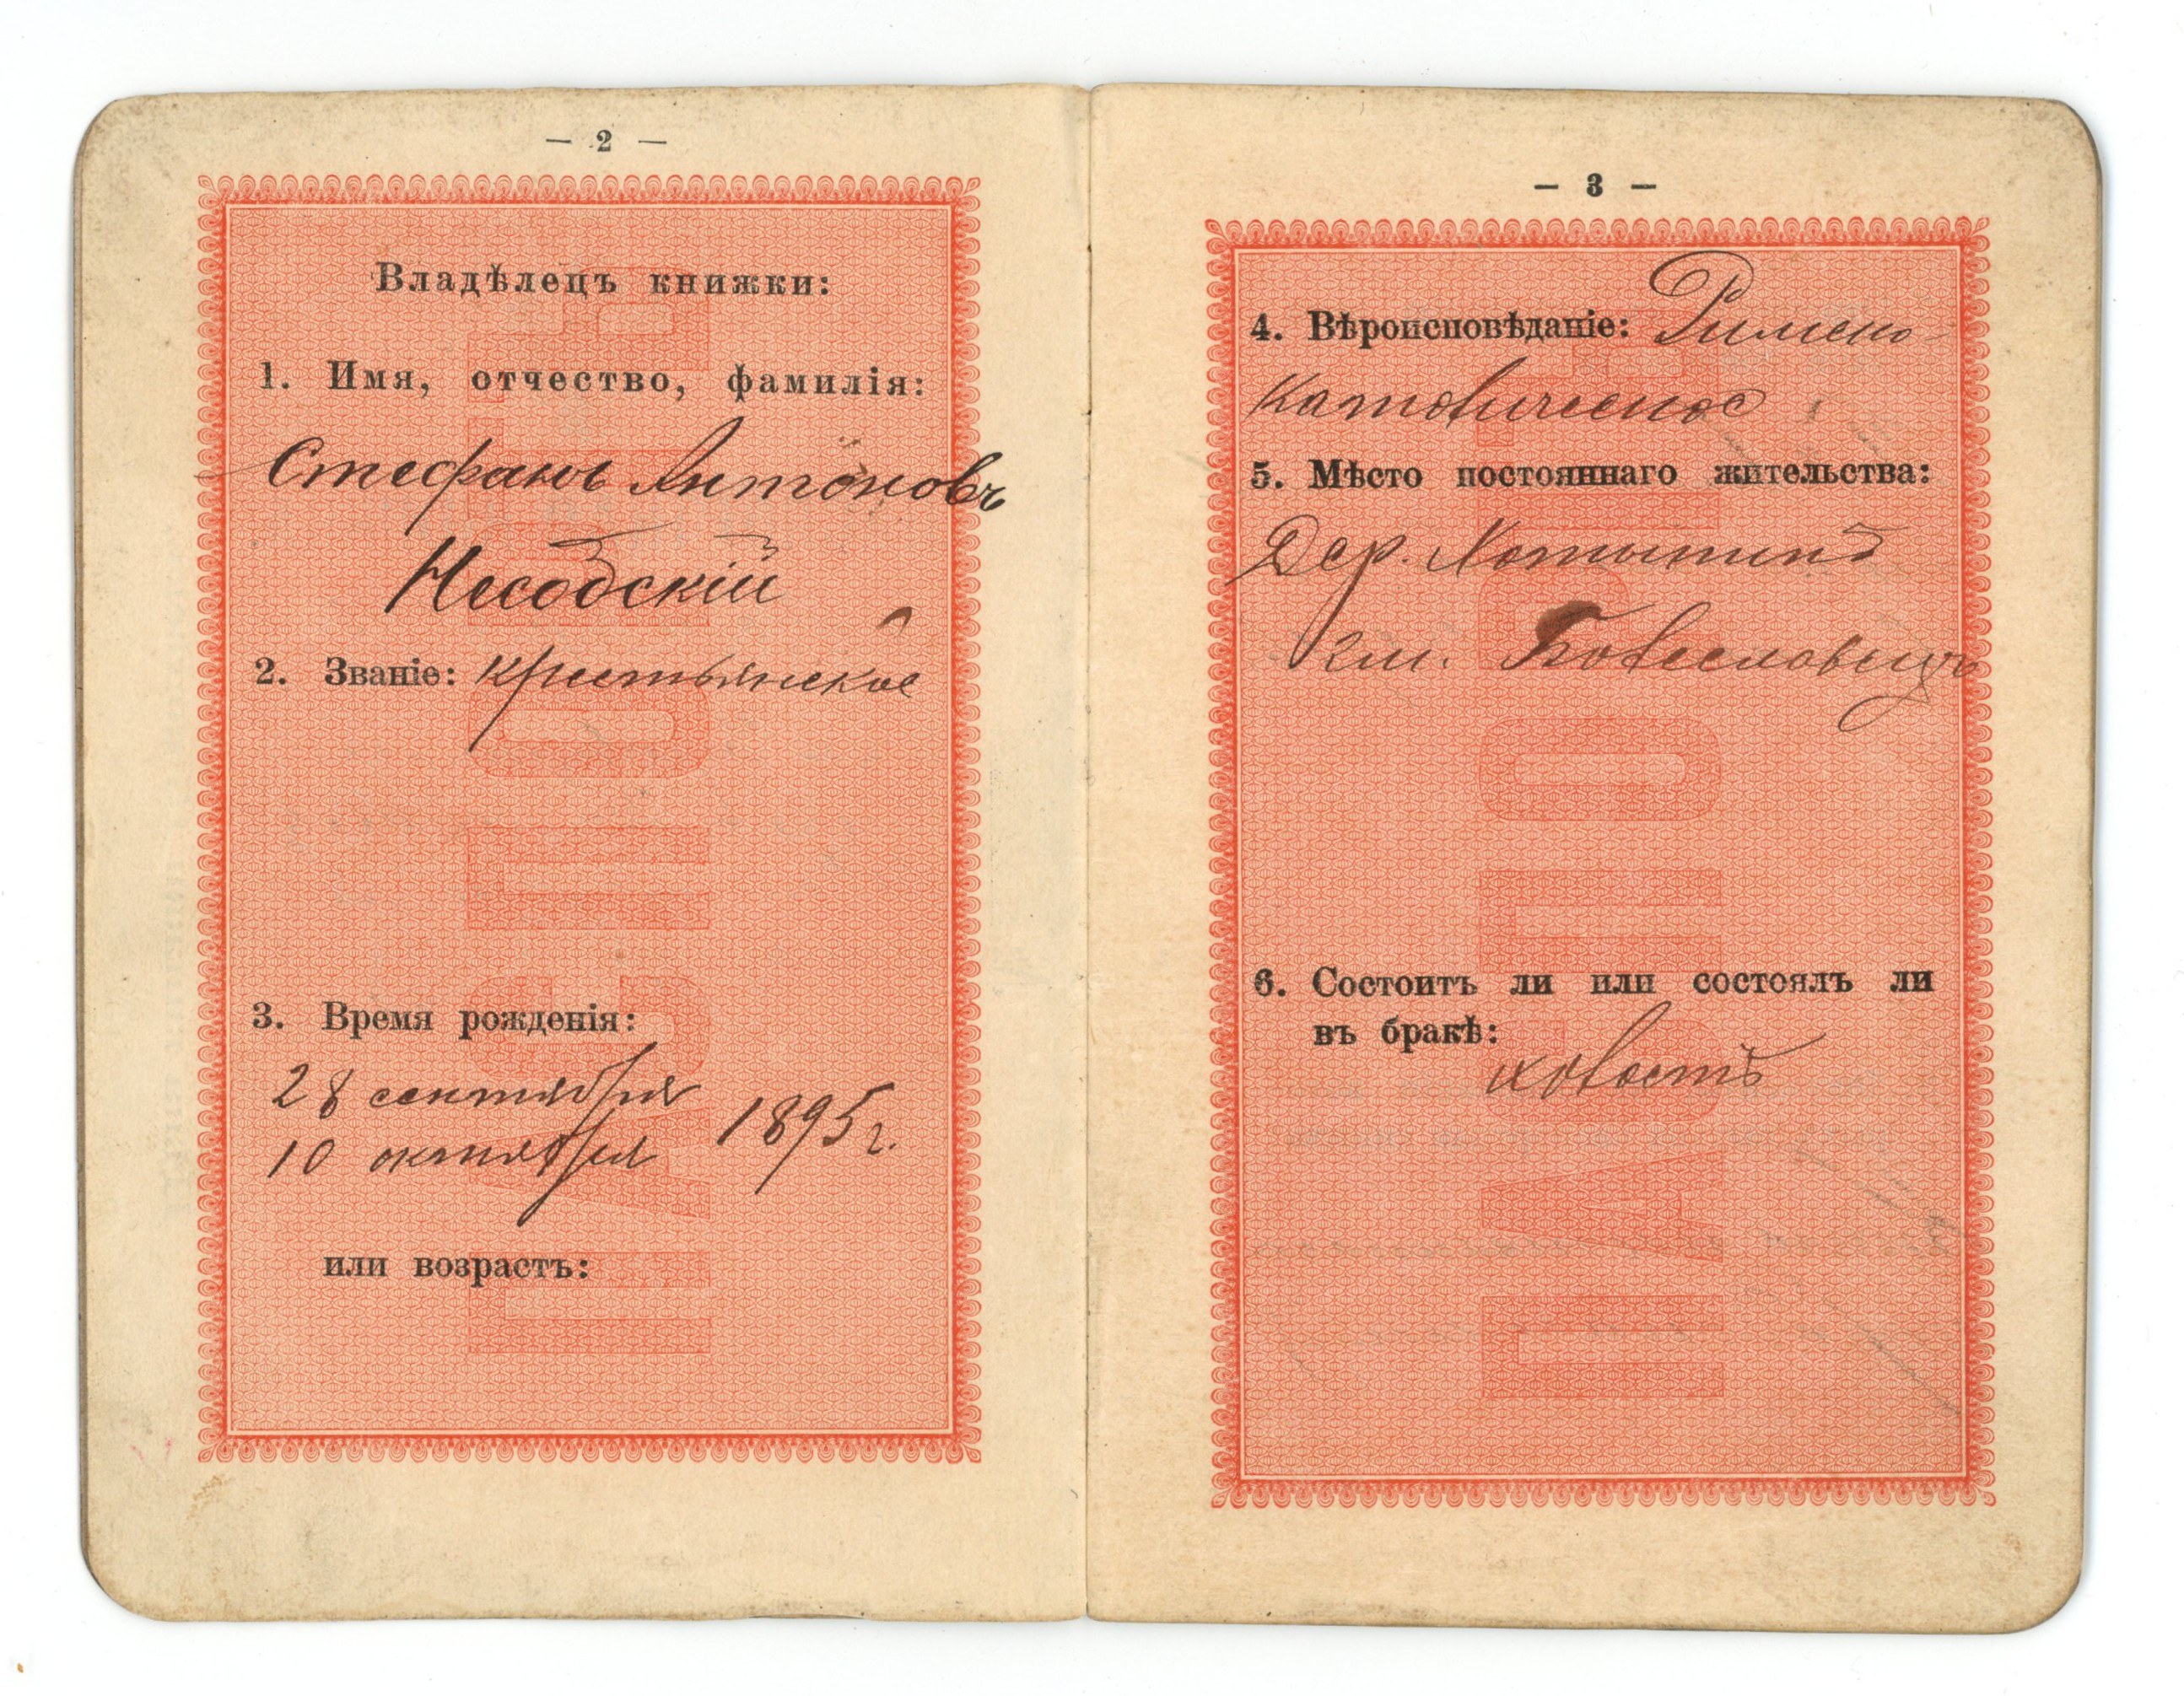 — 2 —
Владѣлецъ книжки:
1. Имя, отчество, фамилія:
Стефанъ Антоновъ
Несобскій
2. Званіе: крестьянское
3. Время рожденія:
28 сентября
10 октября 1895 г.
или возрастъ:
— 3 —
4. Вѣроисповѣданіе: Римско-
католическое
5. Мѣсто постояннаго жительства:
Дер.
гм. Болеславецъ
6. Состоитъ ли или состоялъ ли
въ бракѣ:
холостъ
ПАСПОРТЪ
ПАСПОРТЪ